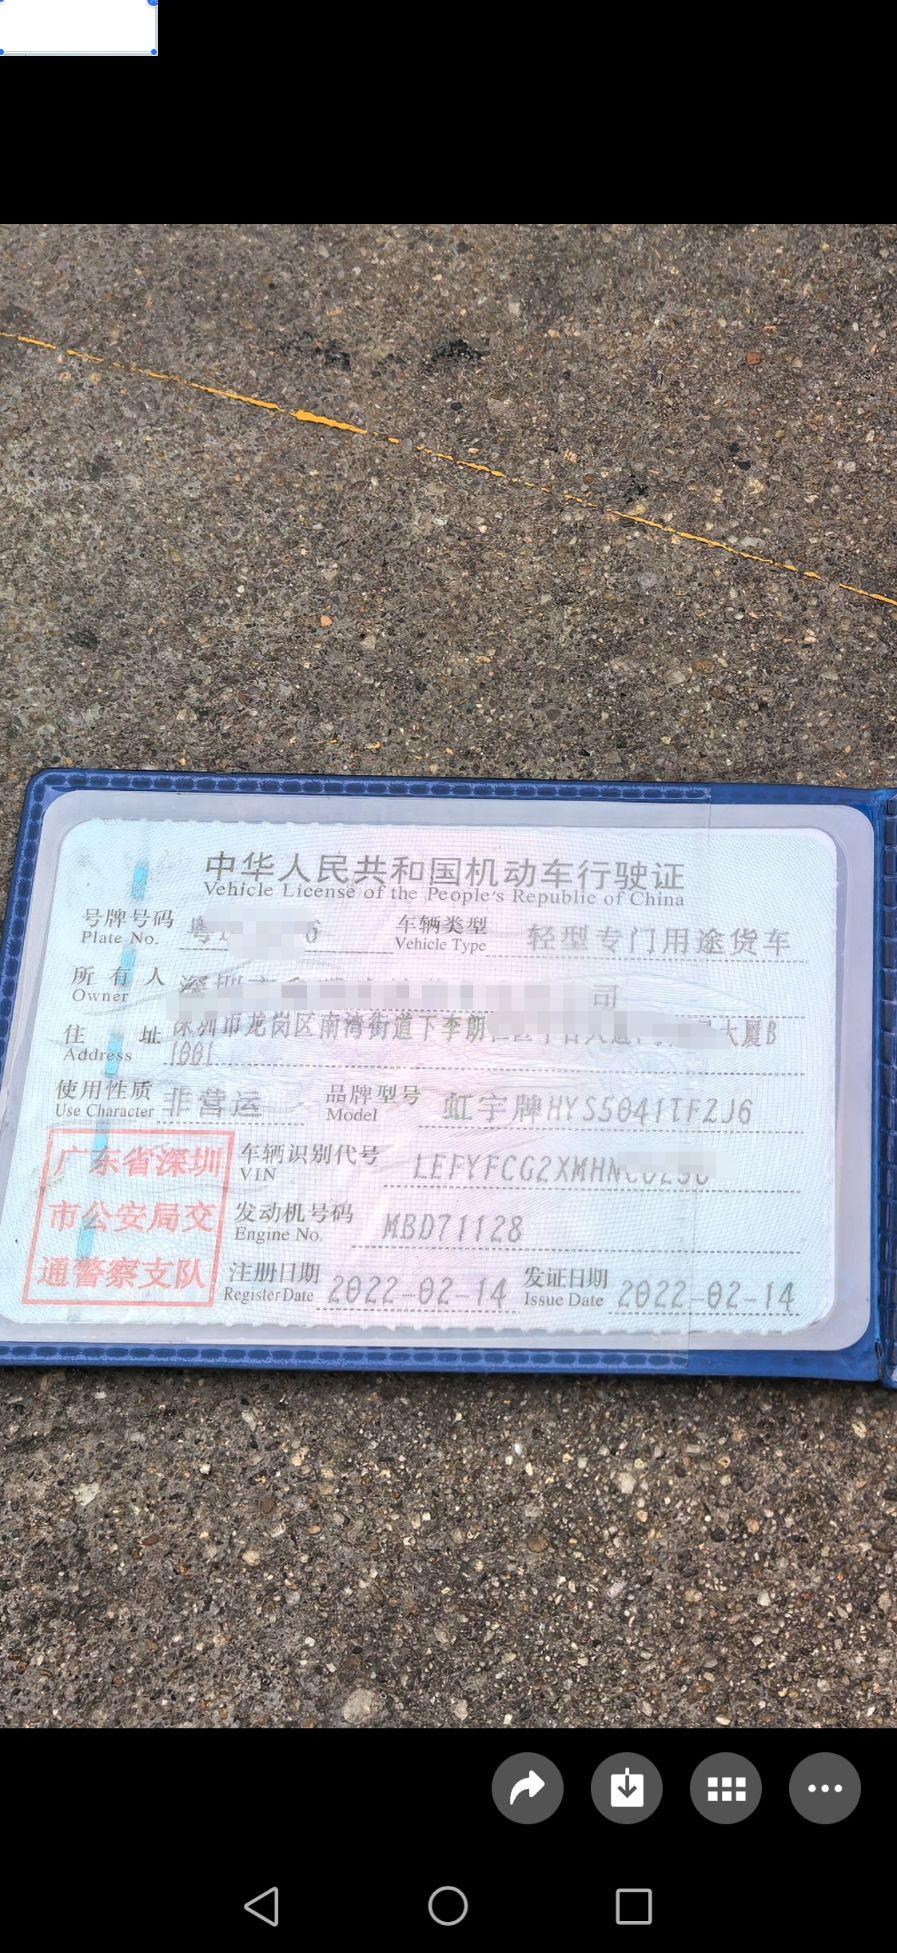 中华人民共和国机动车行驶证
Vehicle License of the People's Republic of China
号牌号码 粤 6 车辆类型 轻型专门用途货车
Plate No. Vehicle Type
所有人 深圳市 司
Owner
住址 深圳市龙岗区南湾街道下李朗 大厦B
Address 1001
使用性质 非营运 品牌型号 虹宇牌HYS5041TFZJ6
Use Character Model
广东省深圳 车辆识别代号 LEFYFCG2XMHN
VIN
市公安局交 发动机号码 MBD71128
Engine No.
通警察支队 注册日期 2022-02-14 发证日期 2022-02-14
Register Date Issue Date